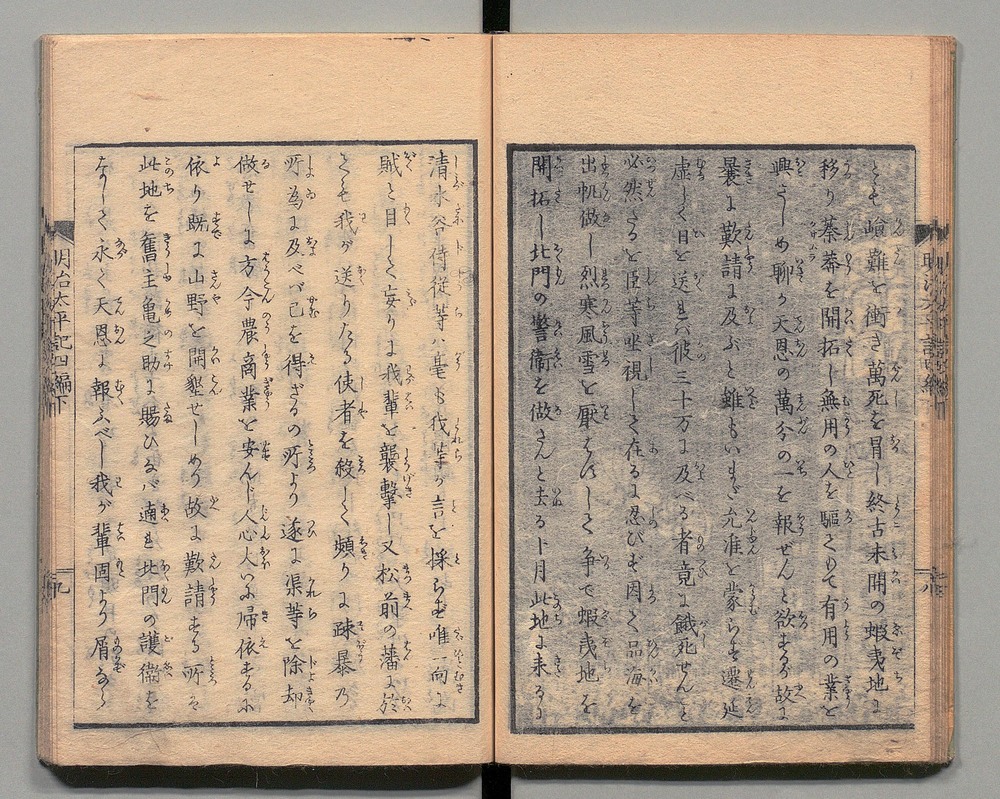 とも嶮難を衝き萬死を冒し終古未開の蝦夷地に
移り蓁莽を開拓し無用の人を驅りて有用の業を
興さしめ聊か天恩の萬分の一を報ぜんと欲するが故に
曩に歎請に及ぶと雖もいまだ允准を蒙らず遷延
虚しく日を送れバ彼三十万に及べる者竟に餓死せんこと
必然たるを臣等坐視して在るに忍びず因て品海を
出帆做し烈寒風雪を厭はずして争で蝦夷地を
開拓し北門の警衛を做さんと去る十月此地に来るに
清水谷侍従等ハ毫も我等が言を採らず唯一向に
賊と目して妄りに我輩を襲撃し又松前の藩に於
ても我が送りたる使者を殺して頻りに疎暴乃
所為に及べバ已を得ざるの所より遂に渠等を除却
做せしに方今農商業を安んじ人心大いに帰依するに
依り既に山野を開墾せしめり故に歎請する所は
此地を舊主亀之助に賜ひなバ適れ北門の護衛を
なして永く天恩に報ふべし我が輩固より屑なら
明治太平記四編下
九